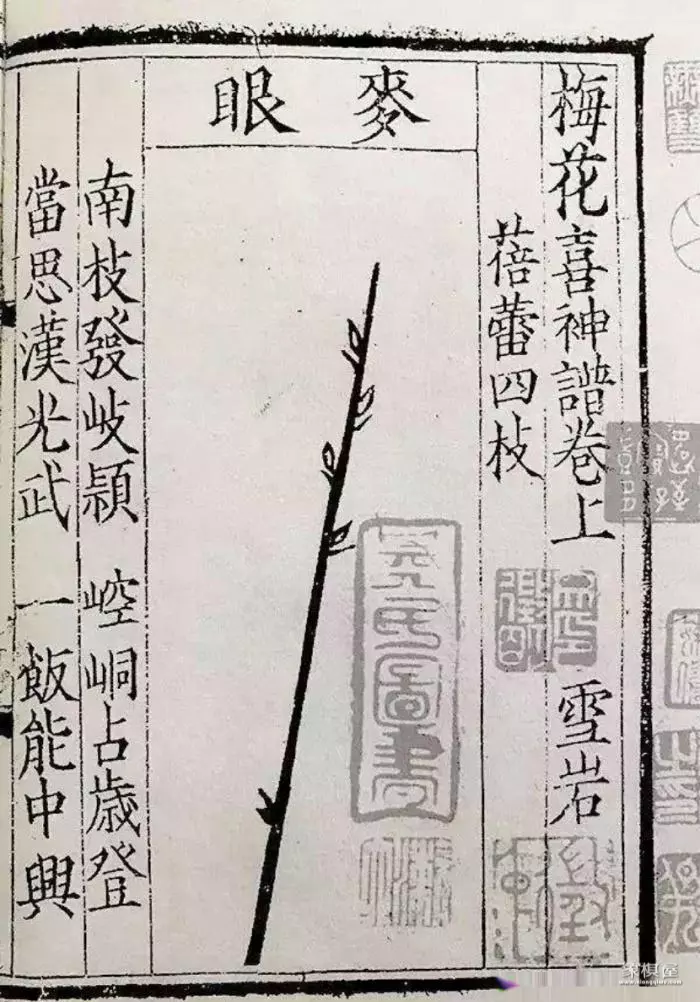 梅花喜神譜卷上
雪岩
蓓蕾四枝
麥眼
南枝發岐穎 崆峒占歲登
當思漢光武 一飯能中興